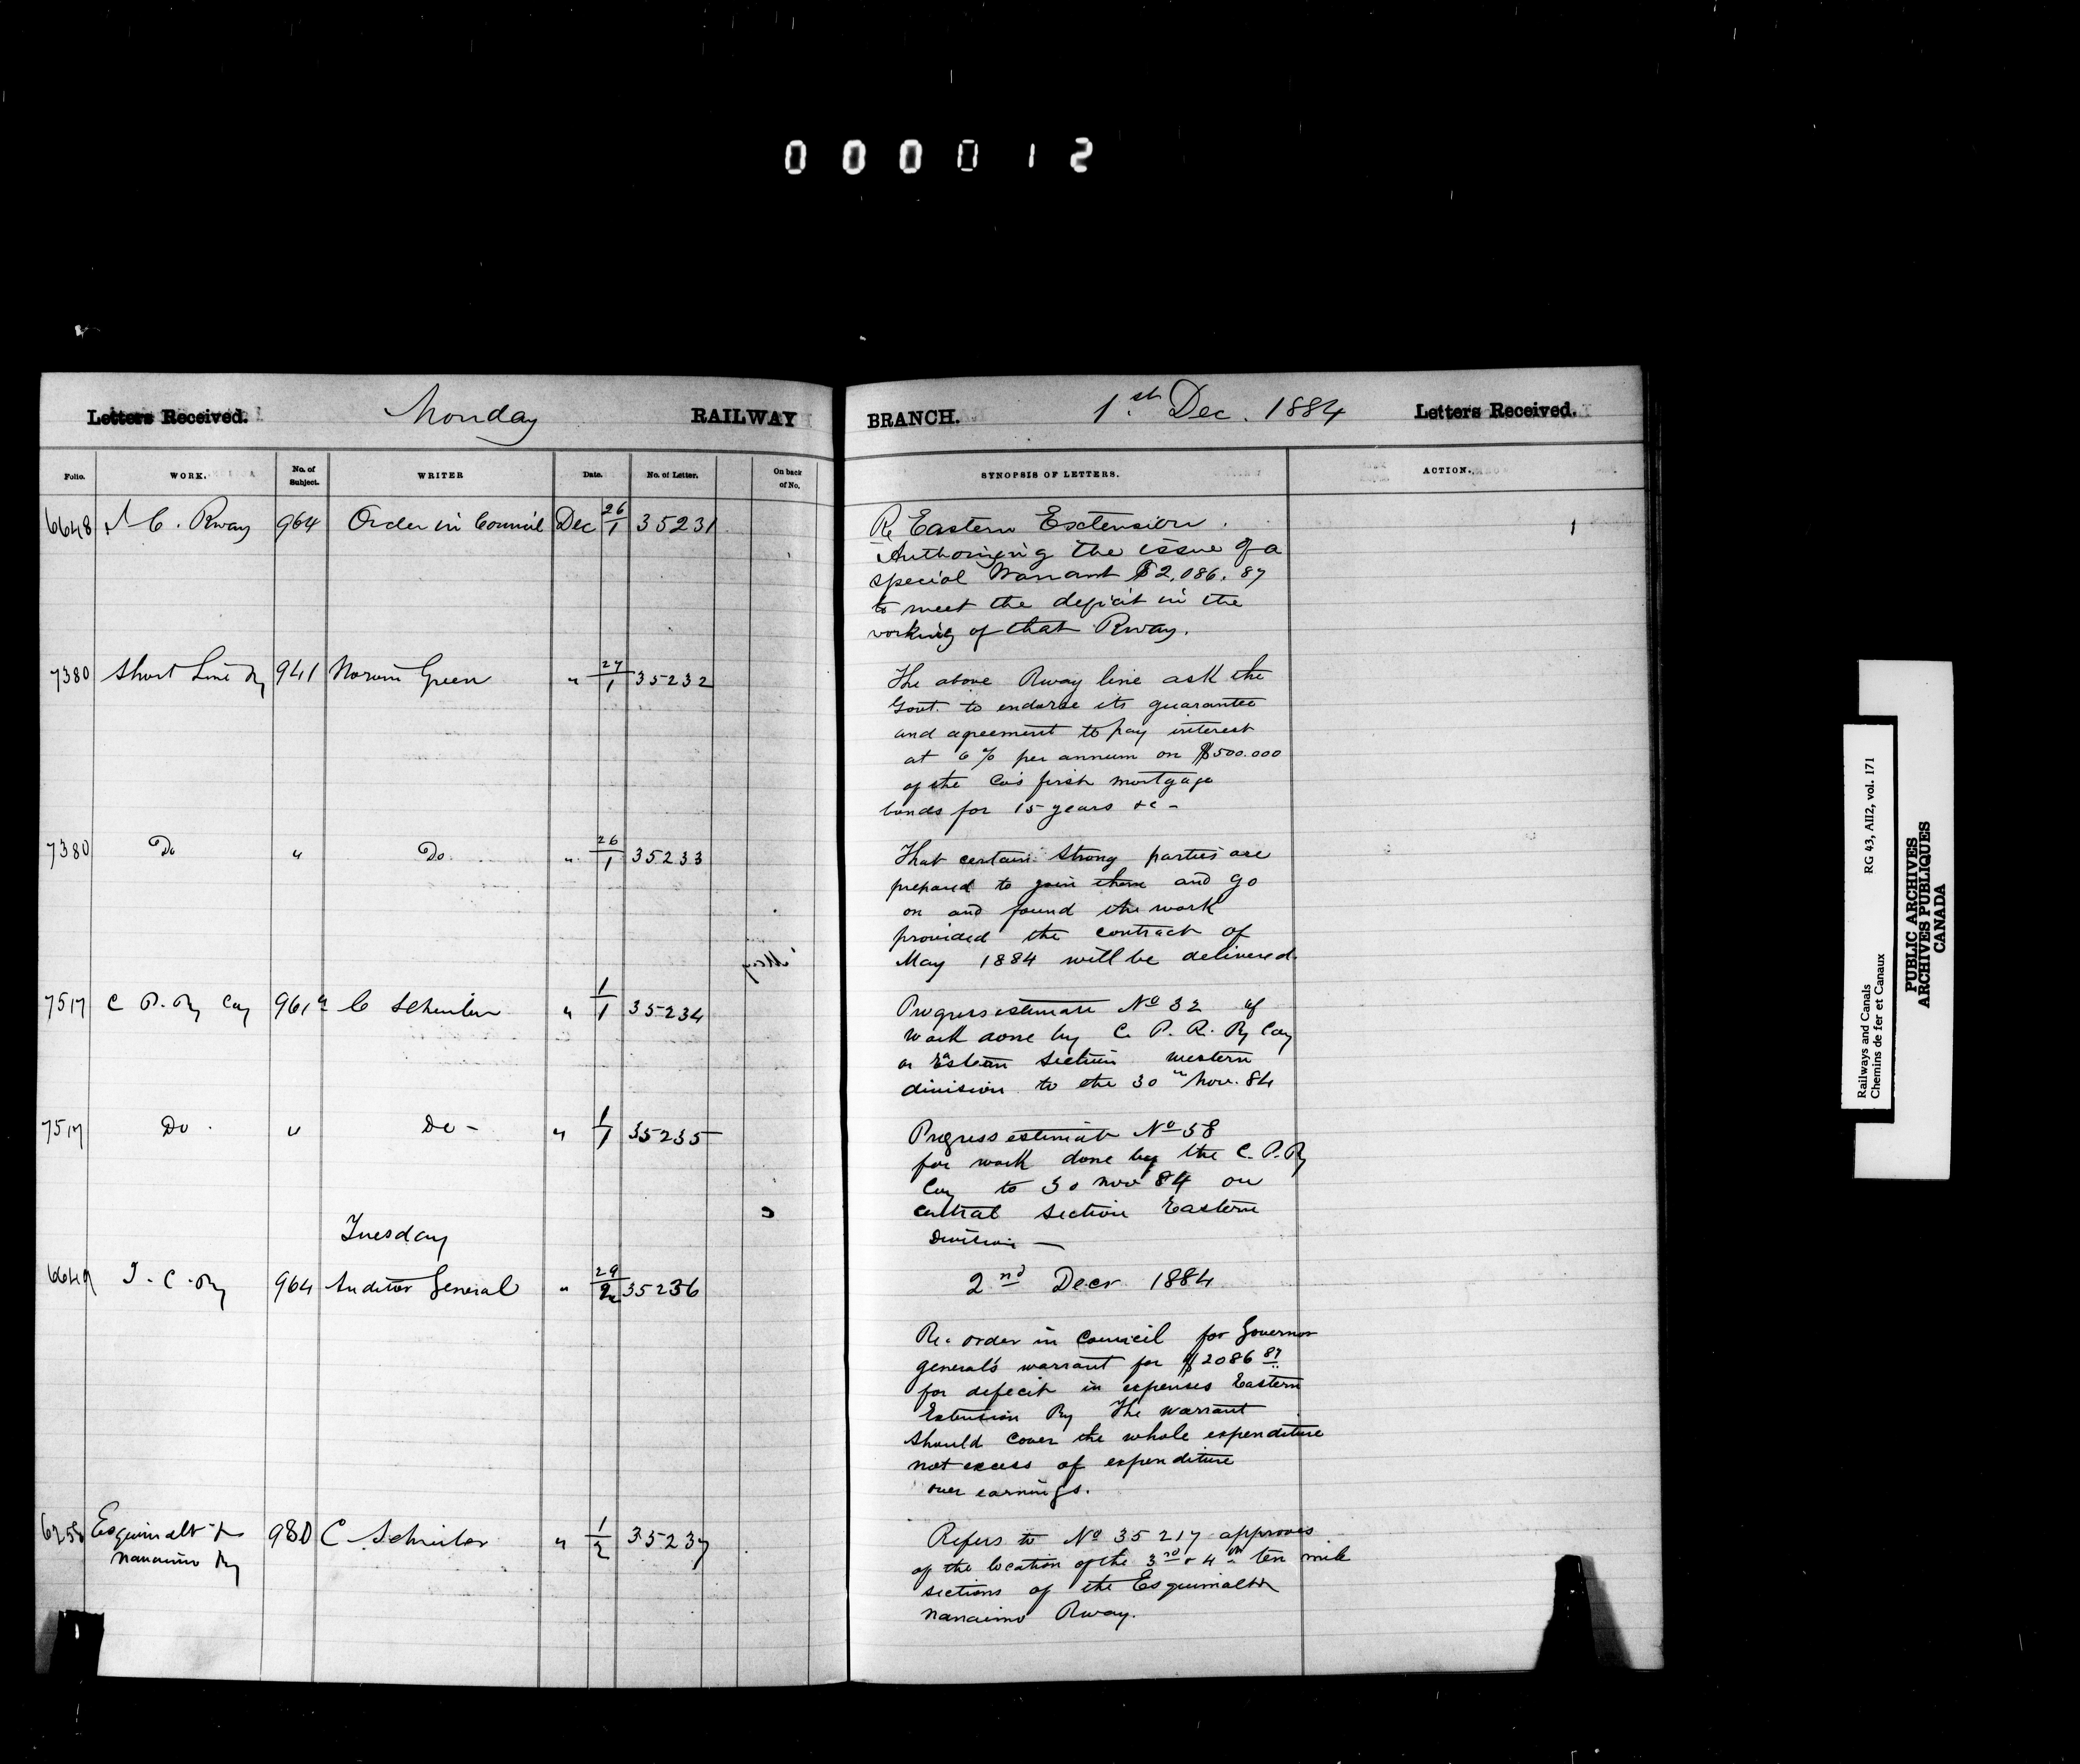 000012
Letters Received. Monday RAILWAY
Folio. WORK. No. of Subject. WRITER Date. No. of Letter. On back of No.
6648 I C. Rway 964 Order in Council Dec 26/1 35231
7380 Short Line Ry 941 Norvin Green " 27/1 35232
7380 Do " Do " 26/1 35233
7517 C P. Ry Coy 961 C Schreiber " 1/1 35234
7517 Do " Do - " 1/1 35235
Tuesday
6649 I. C. Ry 964 Auditor General " 29/2 35236
Esquimalt &
Nanaimo Ry 980 C Schreiber " 1/2 35237
BRANCH. 1st Dec. 1884 Letters Received.
SYNOPSIS OF LETTERS. ACTION.
Re Eastern Extension. 1
Authorizing the issue of a
special Warrant $2,086.87
to meet the deficit in the
working of that Rway.
The above Rway line ask the
Govt. to endorse its guarantee
and agreement to pay interest
at 6 % per annum on $500.000
of the Co's first mortgage
bonds for 15 years &c -
That certain strong parties are
prepared to join them and go
on and found the work
provided the contract of
May 1884 will be delivered.
Progress estimate No 32 of
work done by C. P. R. Ry Coy
on Eastern section western
division to the 30th Nov. 84
Progress estimate No 38
for work done by the C. P. Ry
Coy to 30 Nov 84 on
central section Eastern
Division —
2nd Decr 1884
Re. order in Council for Governor
general's warrant for $2086 87
for deficit in expenses Eastern
Extension Ry The warrant
should cover the whole expenditure
not excess of expenditure
over earnings.
Refers to No 35217 approves
of the location of the 3rd & 4th ten mile
sections of the Esquimalt &
Nanaimo Rway.
Railways and Canals RG 43, AII2, vol. 171
Chemins de fer et Canaux
PUBLIC ARCHIVES
ARCHIVES PUBLIQUES
CANADA